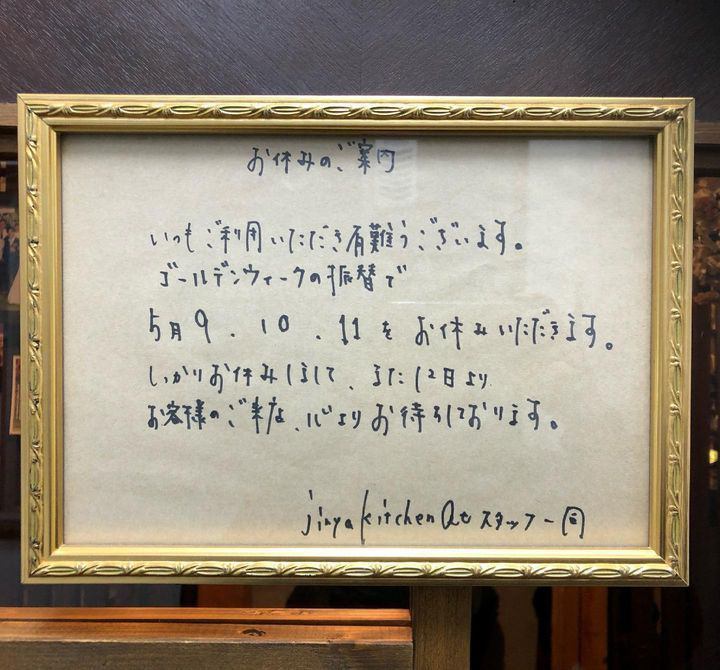 お休みのご案内
いつもご利用いただき有難うございます。
ゴールデンウィークの振替で
5月9、10、11をお休みいただきます。
しっかりお休みしまして、また12日より
お客様のご来店、心よりお待ちしております。
jinya kitchen スタッフ一同